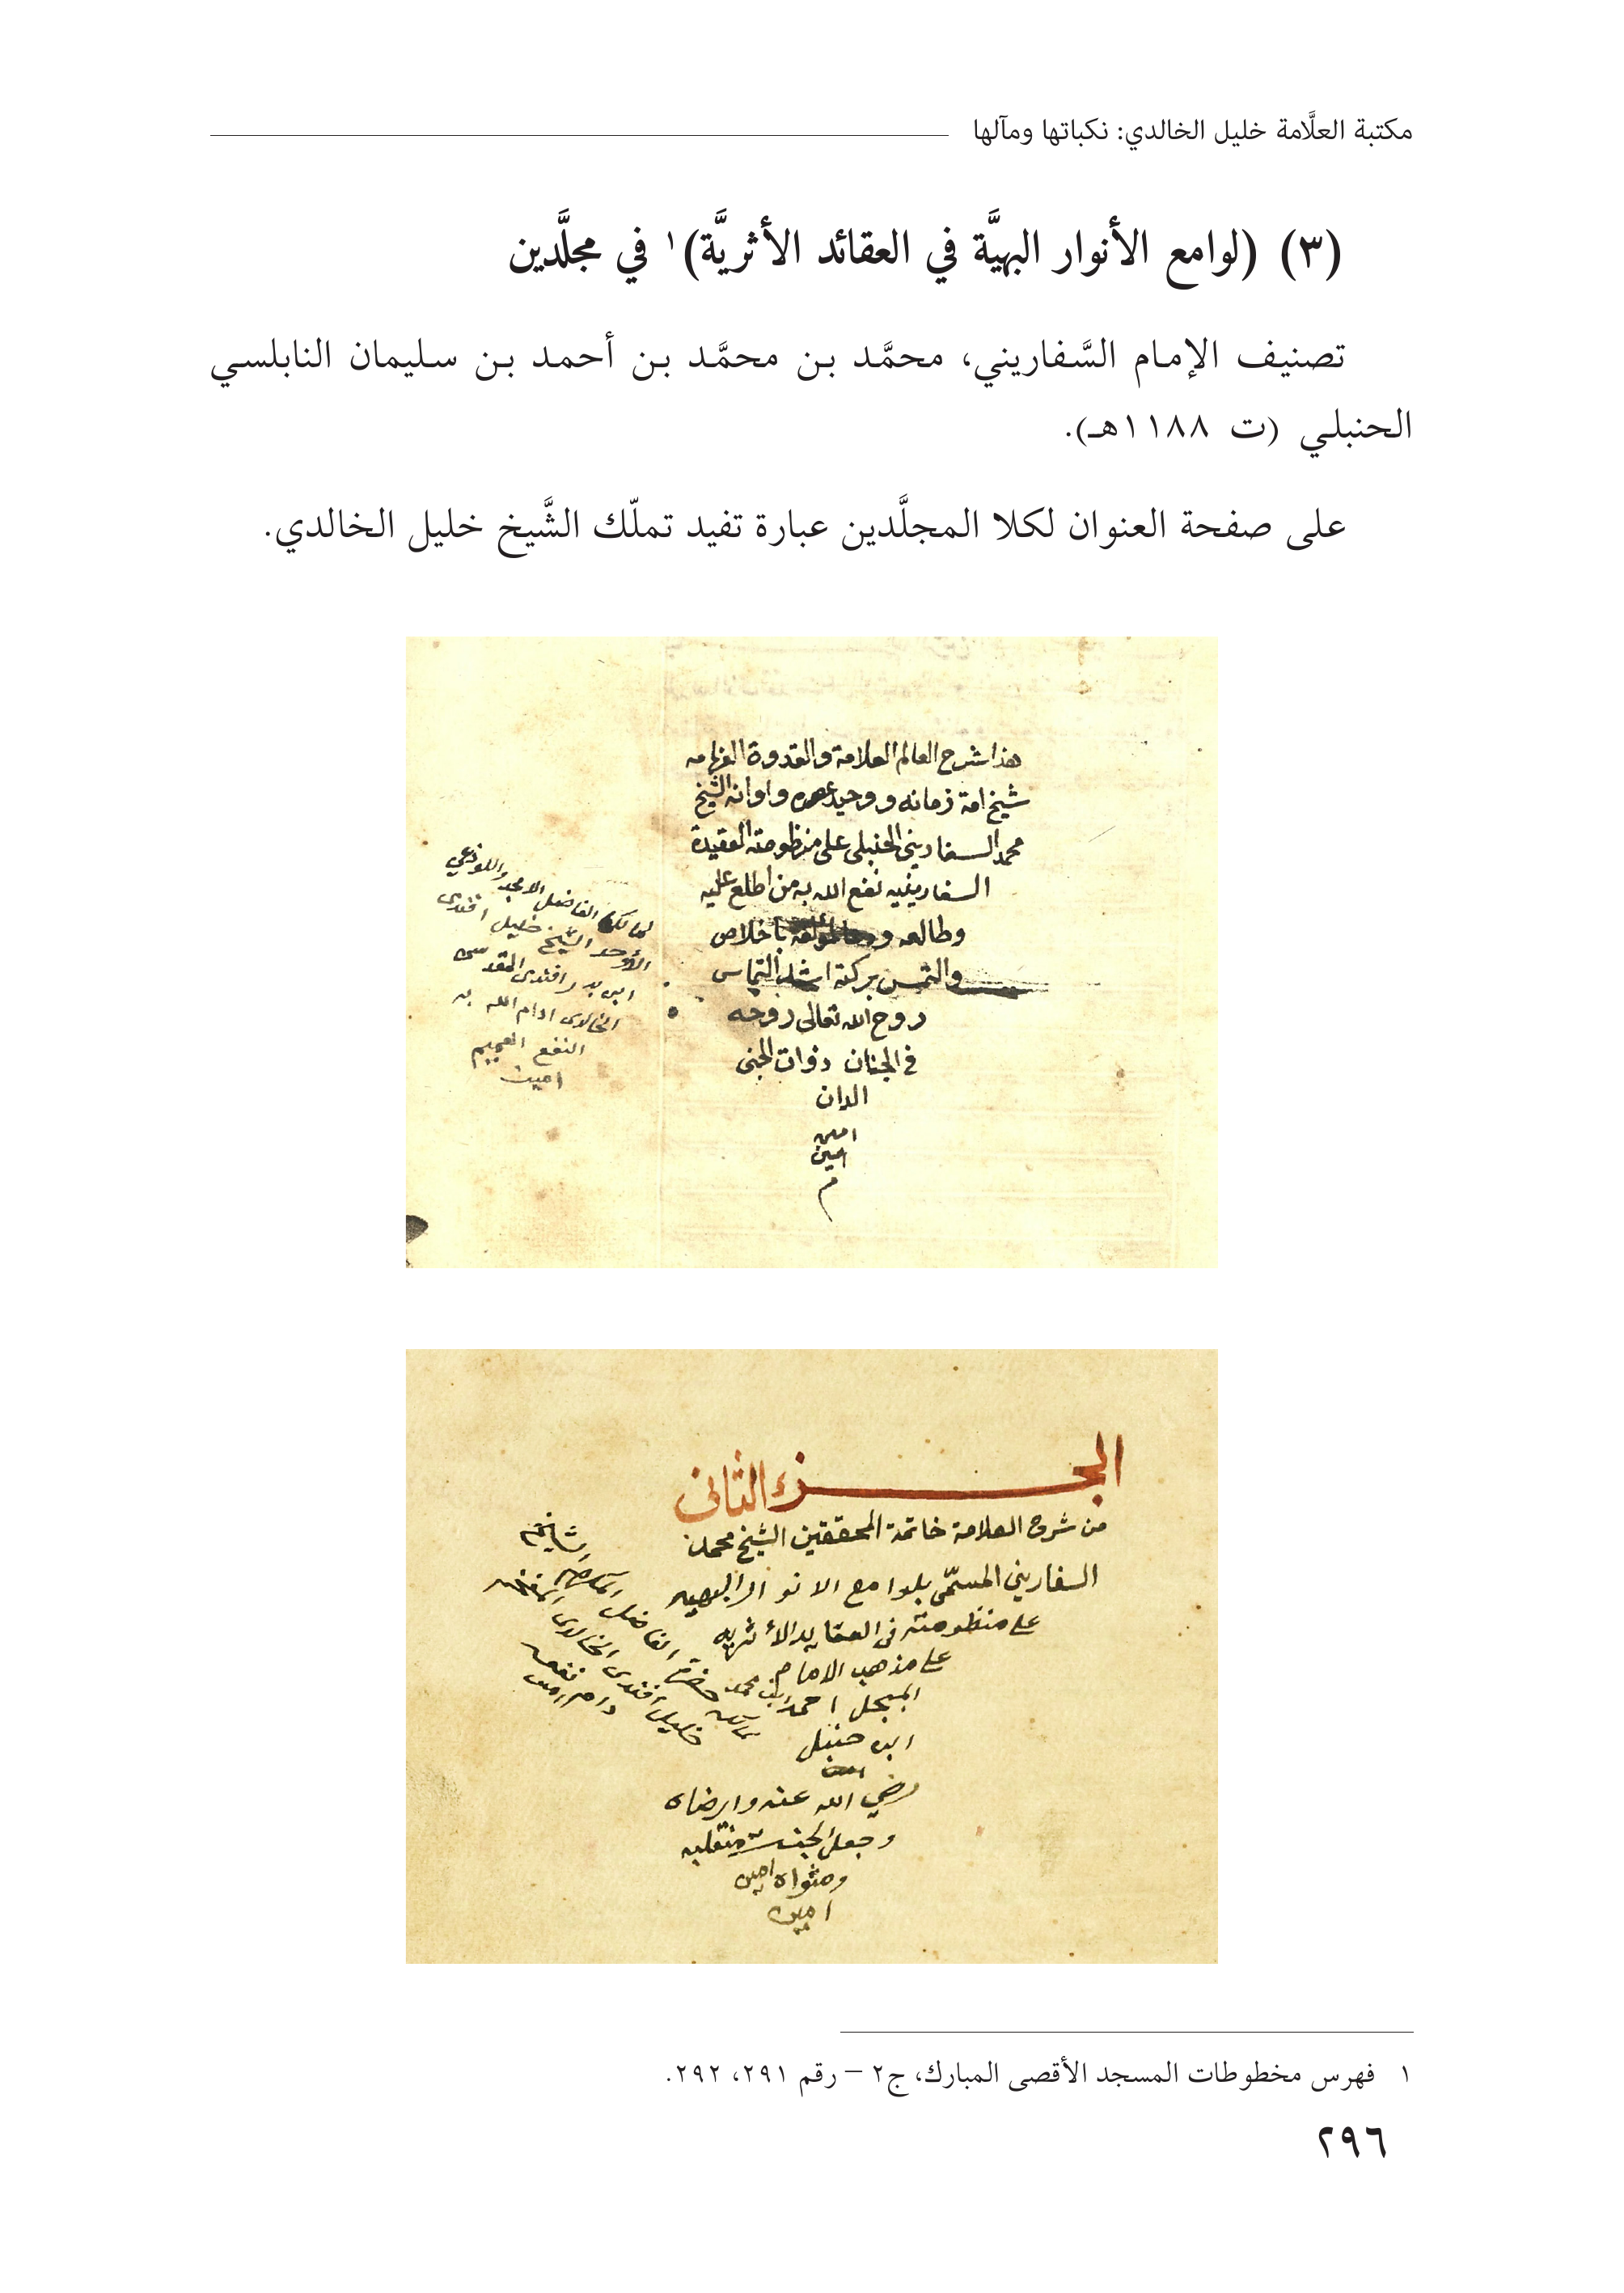 مكتبة العلَّامة خليل الخالدي: نكباتها ومآلها
(٣) (لوامع الأنوار البهيَّة في العقائد الأثريَّة)١ في مجلَّدين
تصنيف الإمام السَّفاريني، محمَّد بن محمَّد بن أحمد بن سليمان النابلسي
الحنبلي (ت ١١٨٨هـ).
على صفحة العنوان لكلا المجلَّدين عبارة تفيد تملّك الشَّيخ خليل الخالدي.
هذا شرح العالم العلامة والقدوة الفهامه
شيخ امة زمانه ووحيد عصره واوانه الشيخ
محمد السفاريني الحنبلي على منظومته العقيدة
السفارينيه نفع الله به من اطلع عليه
وطالعه باخلاص
والتمس بركته اشد التماس
روح الله تعالى روحه
في الجنان ذوات الجنى
الدان
امين
امين
م
لمالكه الفاضل الامجد واللوذعي
الأوحد الشيخ خليل افندى
ابن بدر افندى المقدسى
الخالدى ادام الله به
النفع العميم
امين
الجزء الثانى
من شرح العلامة خاتمة المحققين الشيخ محمد
السفاريني المسمّى بلوامع الانوار البهيه
على منظومته فى العقايد الأثريه
على مذهب الامام
المبجل احمد ابن محمد
ابن حنبل
رضي الله عنه وارضاه
وجعل الجنة منقلبه
ومثواه امين
امين
حضرة الفاضل
خليل افندى الخالدى
دام نفعه
١ فهرس مخطوطات المسجد الأقصى المبارك، ج٢ – رقم ٢٩١، ٢٩٢.
٢٩٦